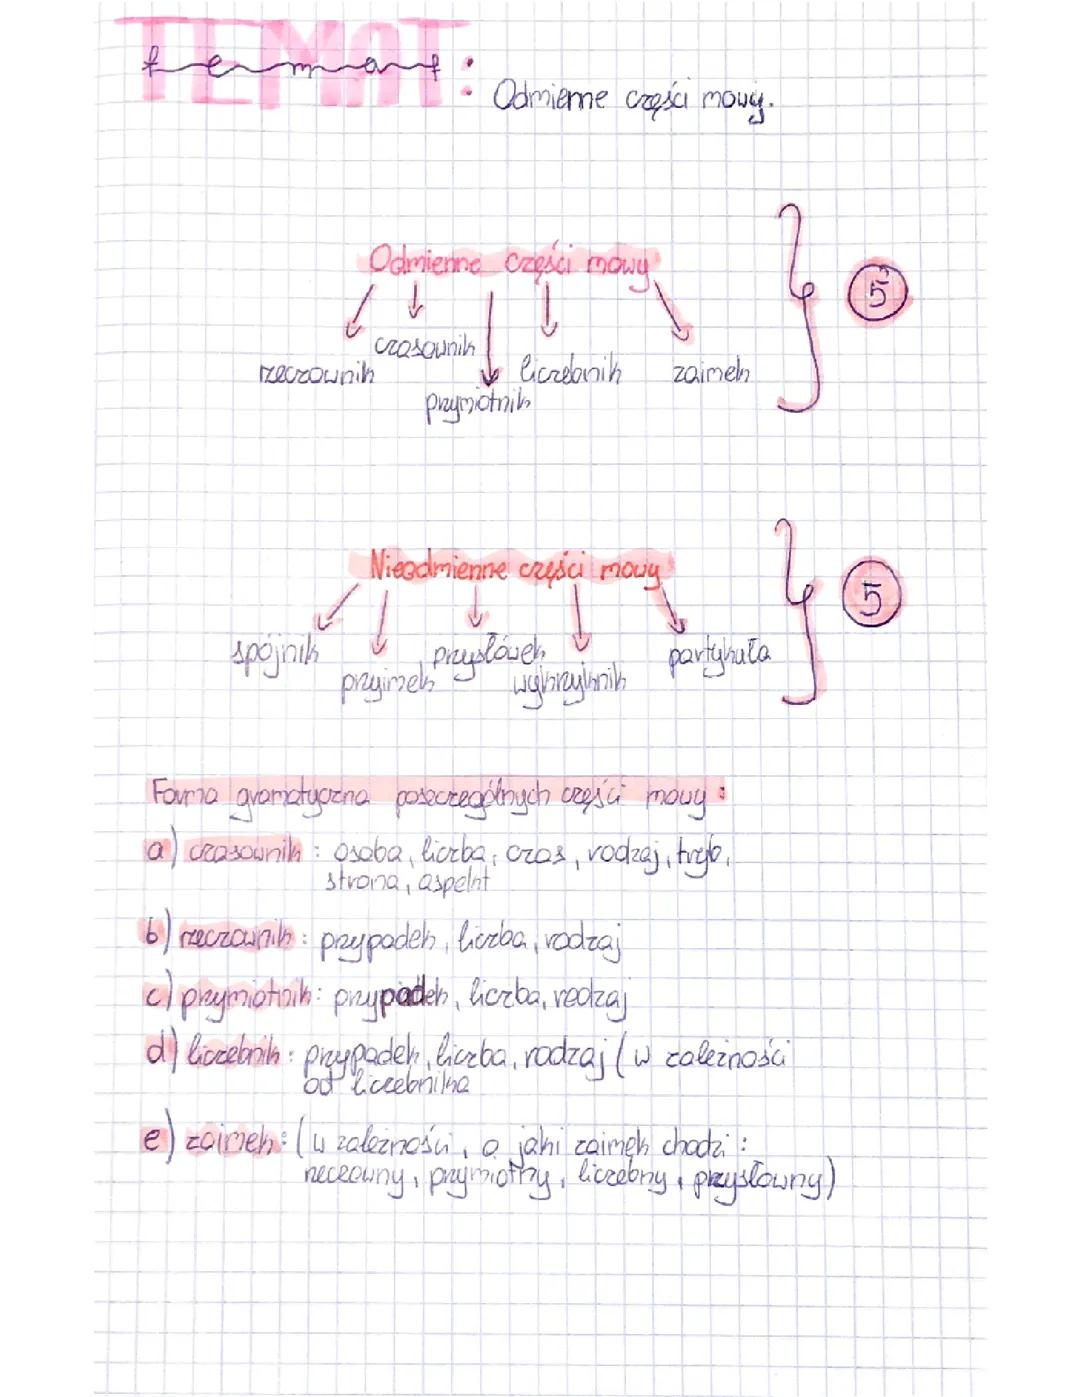 TEMAT:
temat
Odmienne części mowy.
Odmienne części mowy
5
czasownik
rzeczownik
liczebnik
zaimek
przymiotnik
Nieodmienne części mowy
5
spójnik
przysłówek
partykuła
przyimek
wykrzyknik
Forma gramatyczna poszczególnych części mowy:
a) czasownik: osoba, liczba, czas, rodzaj, tryb,
strona, aspekt
b) rzeczownik: przypadek, liczba, rodzaj
c) przymiotnik: przypadek, liczba, rodzaj
d) liczebnik: przypadek, liczba, rodzaj (w zależności
od liczebnika
e) zaimek: (w zależności, o jaki zaimek chodzi:
rzeczowny, przymiotny, liczebny, przysłowny)